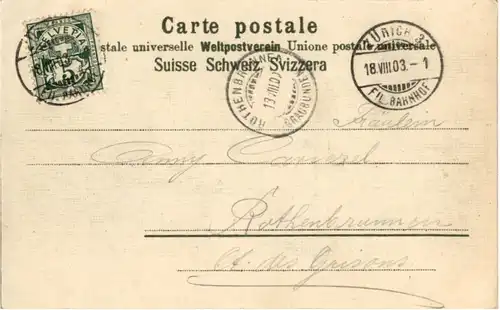 Carte postale
stale universelle Weltpostverein Unione postale universale
Suisse Schweiz Svizzera
HELVETIA
ZÜRICH
18.VIII.03.-1
FIL. BAHNHOF
ROTHENBRUNNEN
(GRAUBÜNDEN)
Fräulein
Anny
Rothenbrunnen
Ct. des Grisons